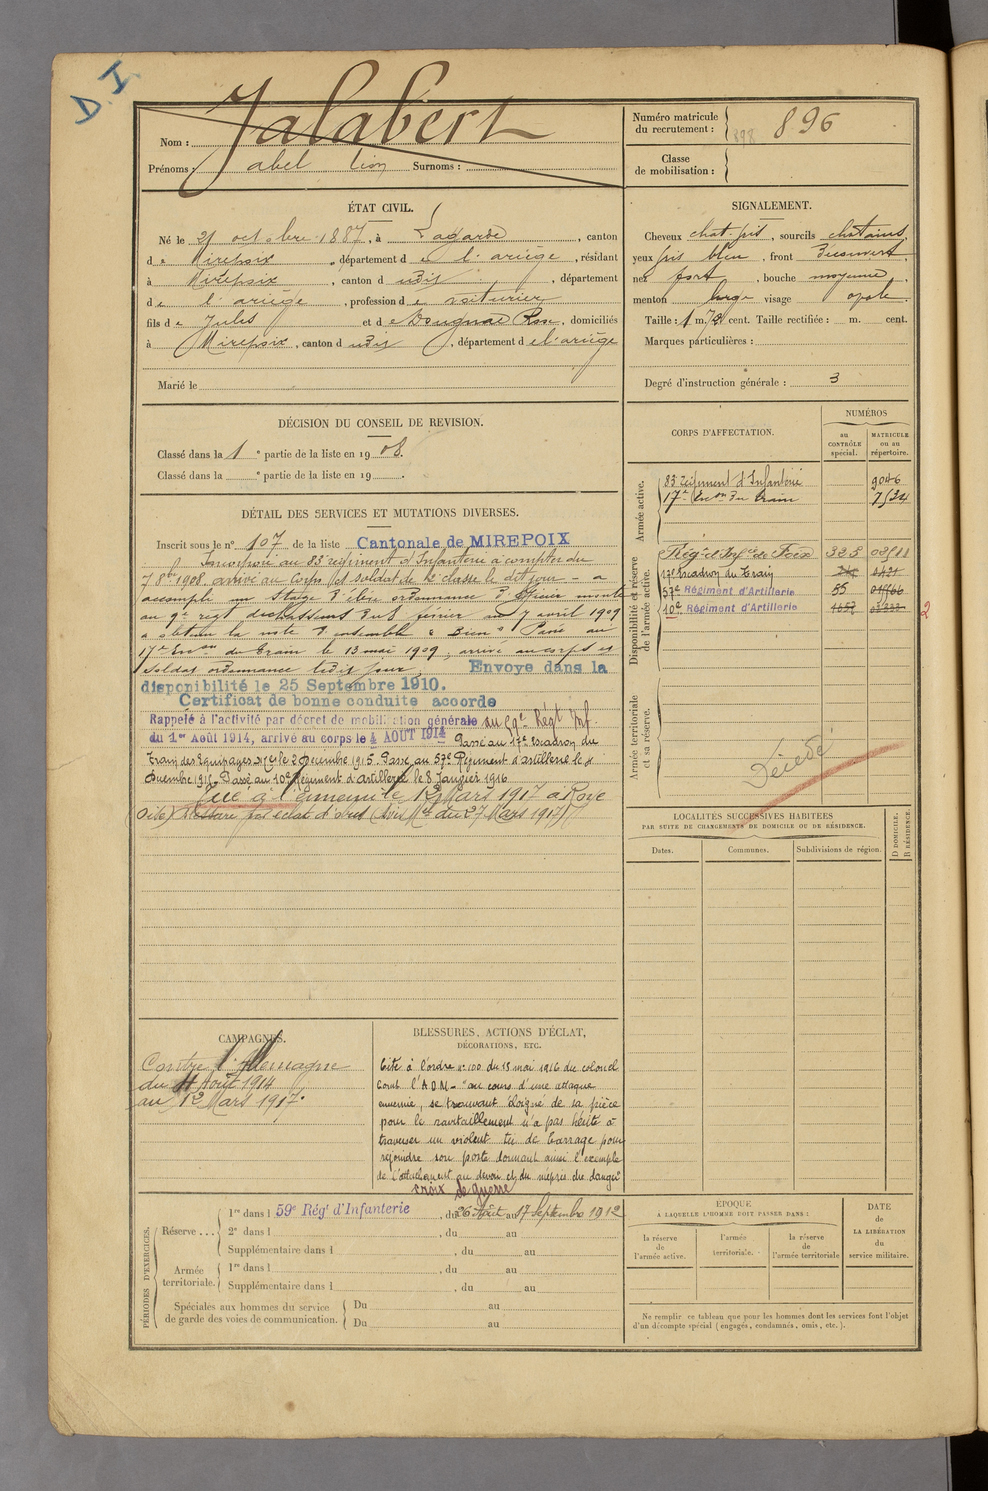 D I
Nom : Jalabert
Prénoms : abel léon Surnoms :
Numéro matricule du recrutement : 896
Classe de mobilisation :
ÉTAT CIVIL.
Né le 21 octobre 1887, à Lagarde, canton
de Mirepoix, département de l'ariège, résidant
à Mirepoix, canton d udit, département
de l'ariège, profession de voiturier
fils de Jules et de Dougnac Rose, domiciliés
à Mirepoix, canton d udit, département de l'ariège
Marié le
SIGNALEMENT.
Cheveux chat. , sourcils chatains,
yeux gris bleu, front découvert,
nez fort, bouche moyenne,
menton large visage ovale.
Taille : 1 m. 72 cent. Taille rectifiée : m. cent.
Marques particulières :
Degré d'instruction générale : 3
DÉCISION DU CONSEIL DE REVISION.
Classé dans la 1e partie de la liste en 1908.
Classé dans la e partie de la liste en 19 .
CORPS D'AFFECTATION.
NUMÉROS
au CONTRÔLE spécial.
MATRICULE ou au répertoire.
Armée active.
83 régiment d'Infanterie 9046
17e Eson du train
Disponibilité et réserve de l'armée active.
Régt d'Infie de Foix 325
17e escadron du Train
57e Régiment d'Artillerie 85
10e Régiment d'Artillerie
2
Armée territoriale et sa réserve.
Décédé
DÉTAIL DES SERVICES ET MUTATIONS DIVERSES.
Inscrit sous le n° 107 de la liste Cantonale de MIREPOIX
Incorporé au 83 régiment d'Infanterie à compter du
7 8bre 1908. arrivé au Corps et soldat de 2e classe le dit jour – a
accompli un stage d'élève ordonnance d'officier monté
au 9e régt de chasseurs du 8 février au 7 avril 1909
a obtenu la note d'ensemble "Bien" Passé au
17e Eson du Train le 13 mai 1909, arrivé au corps et
soldat ordonnance ledit jour Envoye dans la
disponibilité le 25 Septembre 1910.
Certificat de bonne conduite accorde
Rappelé à l'activité par décret de mobilisation générale au 59e Régt Inf.
du 1er Août 1914, arrivé au corps le 4 AOUT 1914 Passé au 17e escadron du
Train des Equipages Mres le 2 Décembre 1915. Passé au 57e Régiment d'artillerie le
Décembre 1915 Passé au 10e Régiment d'artillerie le 8 Janvier 1916
Tué à l'ennemi le 12 Mars 1917 à Roye
(Oise) par éclat d'obus (avis Mel du 27 Mars 1917)
LOCALITÉS SUCCESSIVES HABITÉES
PAR SUITE DE CHANGEMENTS DE DOMICILE OU DE RÉSIDENCE.
Dates.
Communes.
Subdivisions de région.
D DOMICILE.
R RÉSIDENCE.
CAMPAGNES.
Contre l'Allemagne
du 4 Août 1914
au 12 Mars 1917.
BLESSURES, ACTIONS D'ÉCLAT,
DÉCORATIONS, ETC.
Cité à l'ordre n° 100 du 13 mai 1916 du colonel
Comt l'A.D.N – "au cours d'une attaque
ennemie, se trouvant éloigné de sa pièce
pour le ravitaillement n'a pas hésité à
traverser un violent tir de barrage pour
rejoindre son poste donnant ainsi l'exemple
de l'attachement au devoir et du mépris du danger"
croix de guerre
PÉRIODES D'EXERCICES.
Réserve ...
1re dans l 59e Régt d'Infanterie, du 26 Août au 17 Septembre 1912
2e dans l , du au
Supplémentaire dans l , du au
Armée territoriale.
1re dans l , du au
Supplémentaire dans l , du au
Spéciales aux hommes du service de garde des voies de communication.
Du au
Du au
EPOQUE
A LAQUELLE L'HOMME DOIT PASSER DANS :
la réserve de l'armée active.
l'armée territoriale.
la réserve de l'armée territoriale
DATE de LA LIBÉRATION du service militaire.
Ne remplir ce tableau que pour les hommes dont les services font l'objet
d'un décompte spécial (engagés, condamnés, omis, etc.).